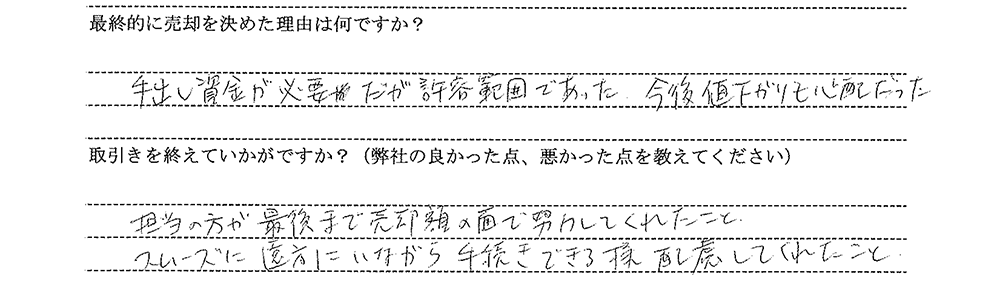 最終的に売却を決めた理由は何ですか？
手出し資金が必要だが許容範囲であった．今後値下がりも心配だった
取引きを終えていかがですか？（弊社の良かった点、悪かった点を教えてください）
担当の方が最後まで売却額の面で努力してくれたこと．
スムーズに遠方にいながら手続きできる様配慮してくれたこと．